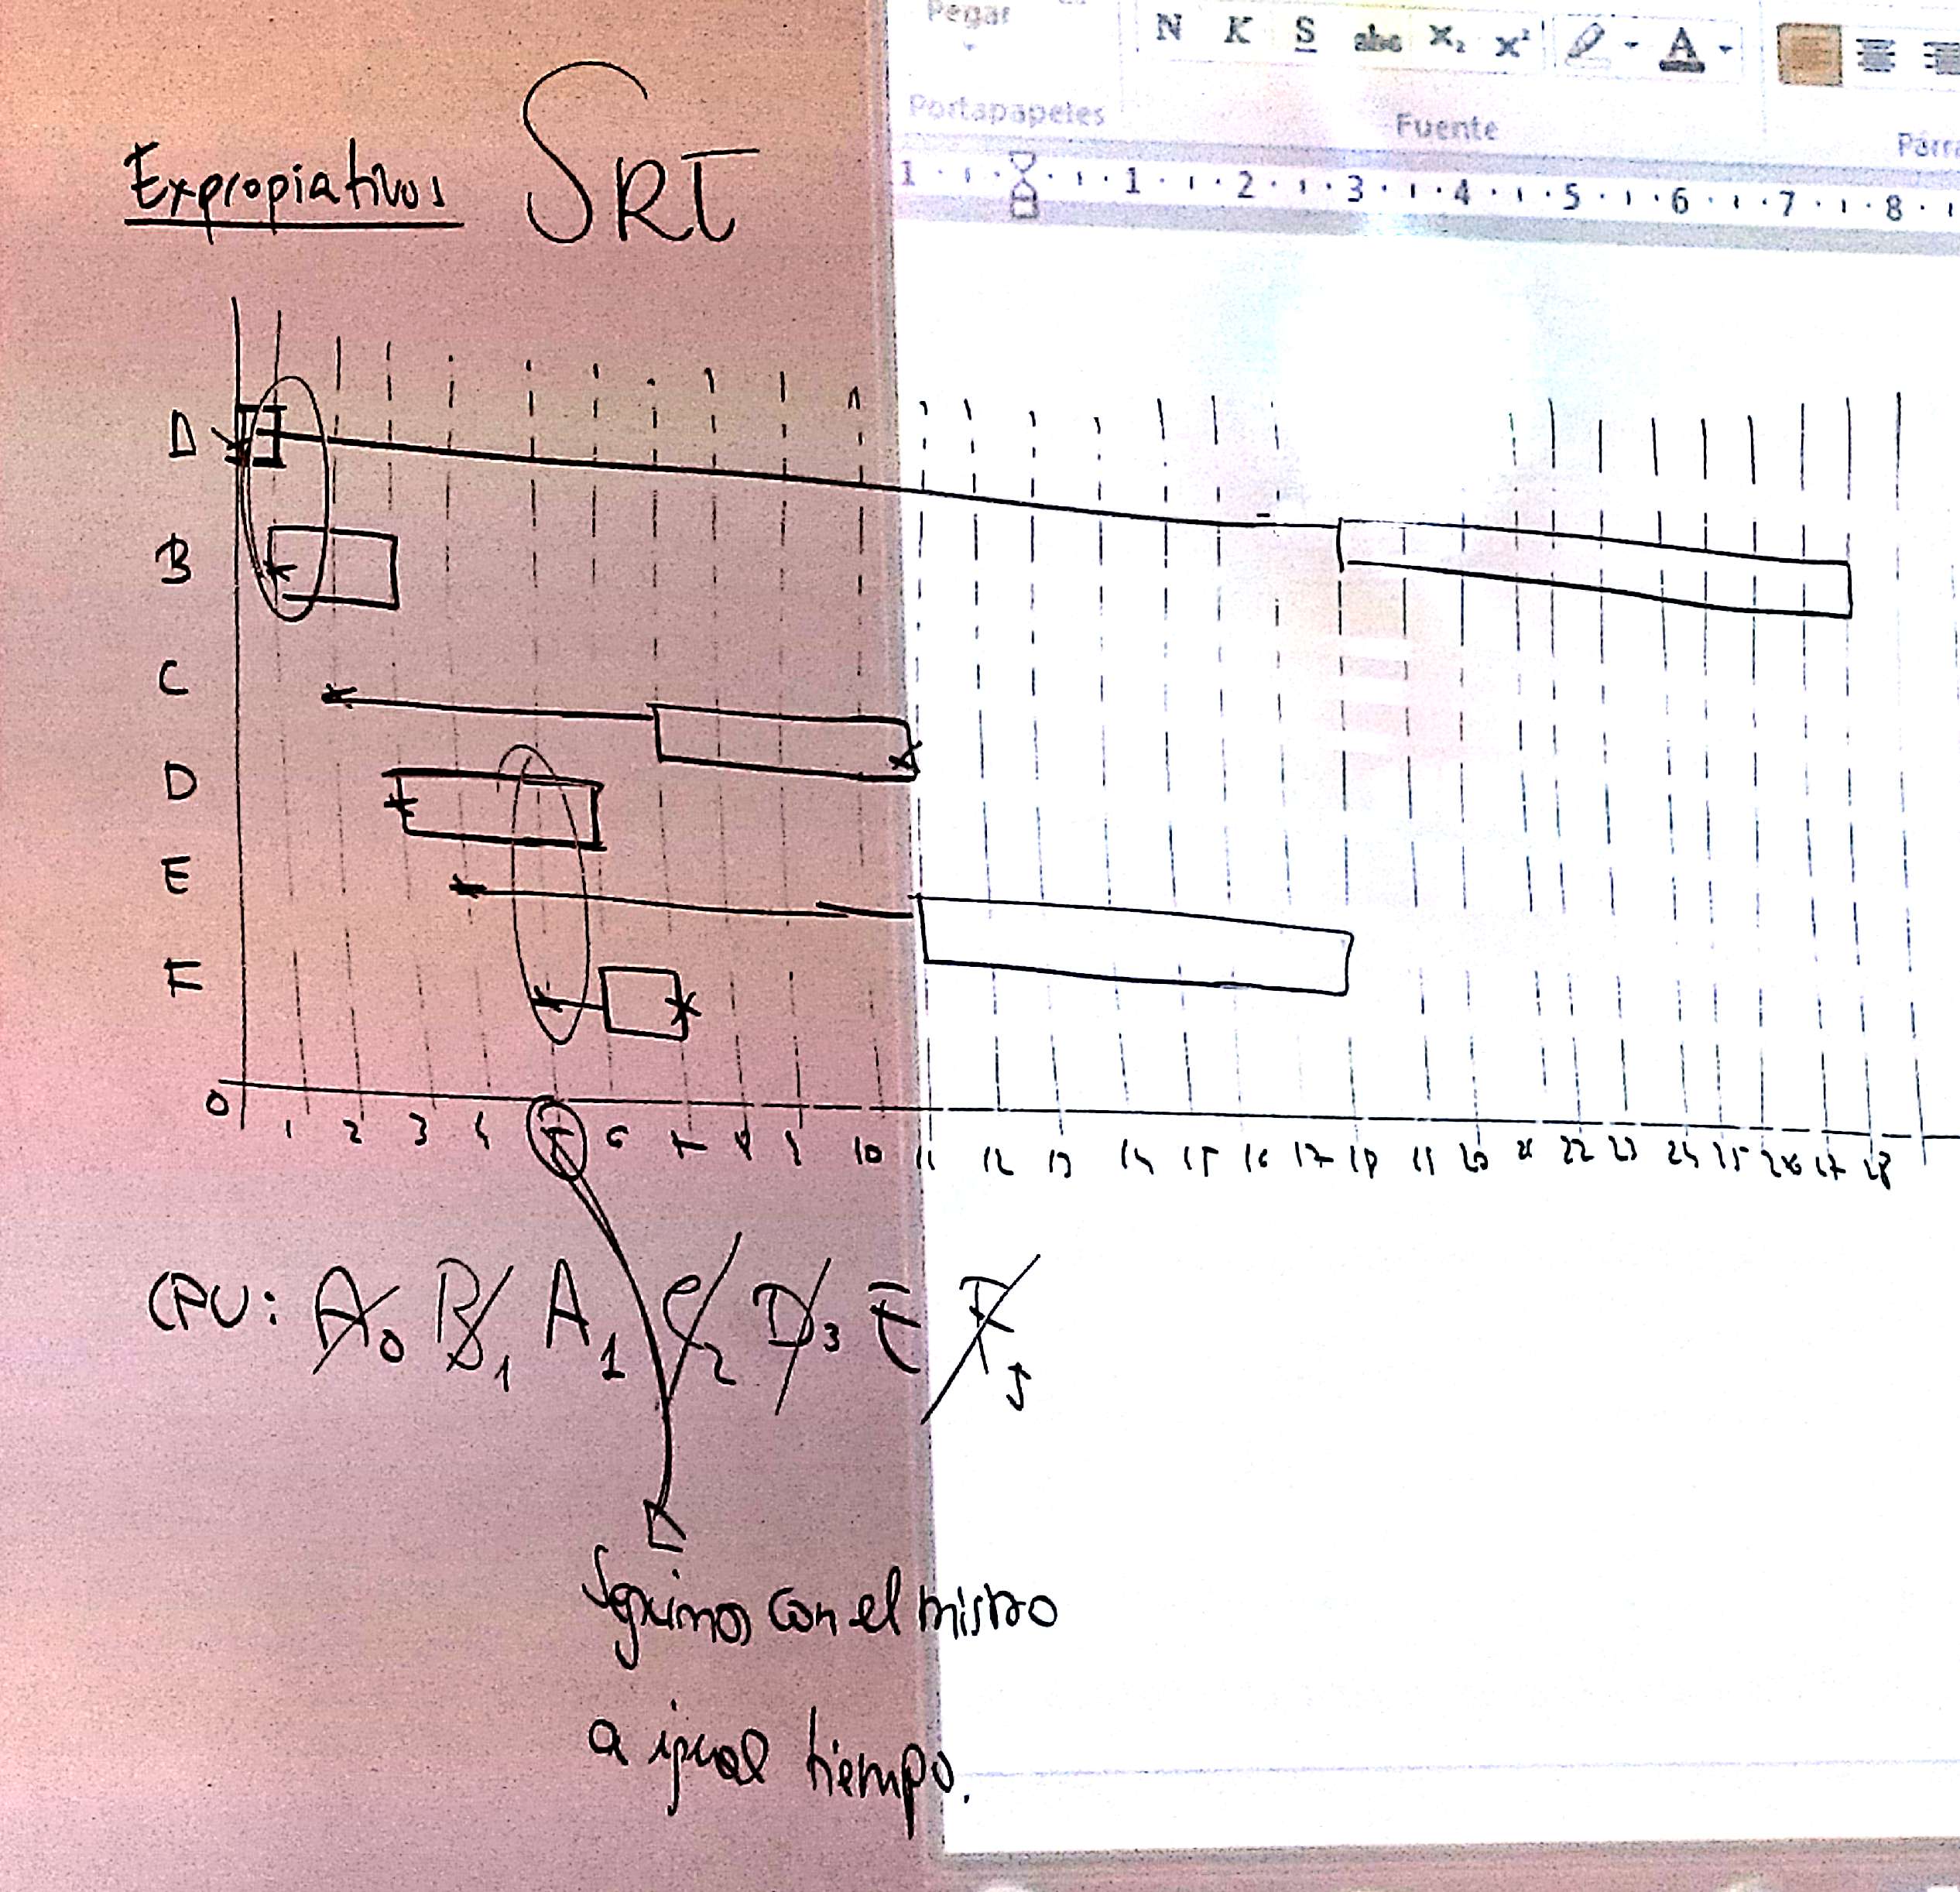 Pegar
N K S abc X₂ X² A
Portapapeles
Fuente
Párra
1 1 2 3 4 5 6 7 8
Expropiativos SRT
B
C
D
E
F
0 1 2 3 4 5 6 7 8 9 10 11 12 13 14 15 16 17 18 19 20 21 22 23 24 25 26 27 28
CPU: A₀ B₁ A₁ C₂ D₃ E F₅
Seguimos con el mismo
a igual tiempo.